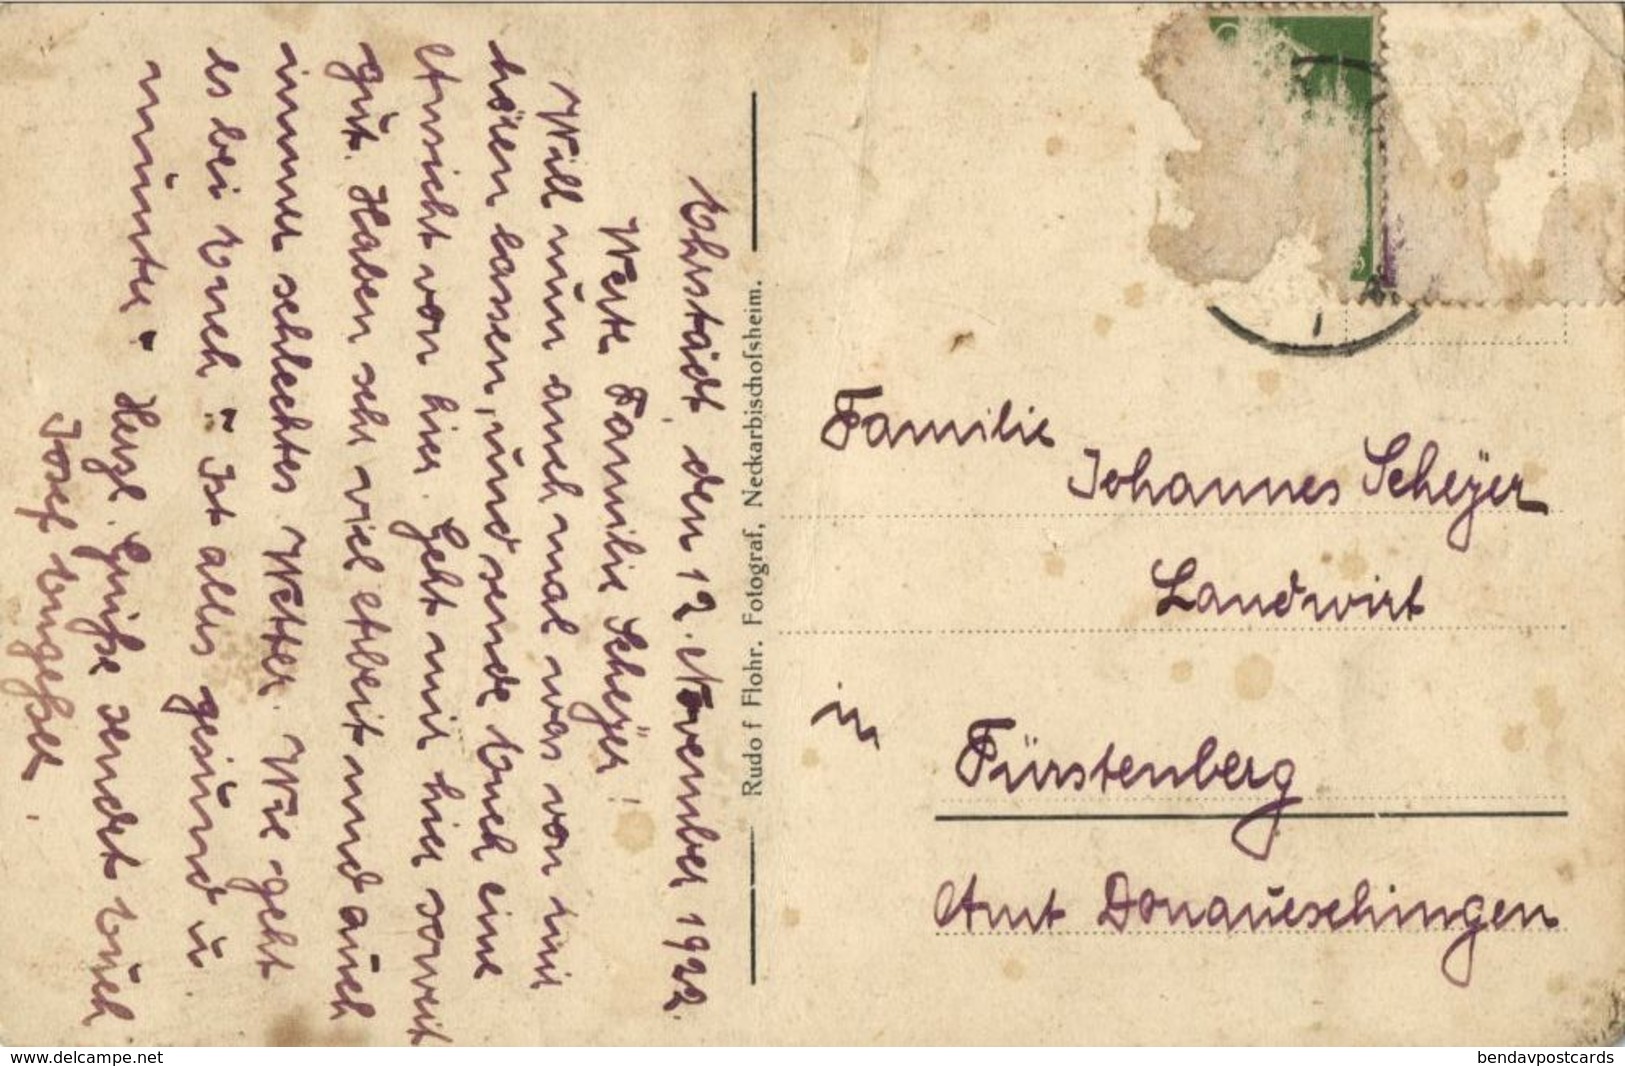 Ehrstädt, den 12. November 1922.
Werte Familie Scheÿer!
Will nun auch mal was von mir
hören lassen, und sende Euch eine
Ansicht von hier. Geht mir hier soweit
gut. Haben sehr viel Arbeit und auch
immer schlechtes Wetter. Wie geht
es bei Euch " Ist alles gesund u
munter " Herzl. Grüße sendet Euch
Josef
Rudolf Flohr. Fotograf, Neckarbischofsheim.
Familie
Johannes Scheÿer
Landwirt
in
Fürstenberg
Amt Donaueschingen
www.delcampe.net
bendavpostcards